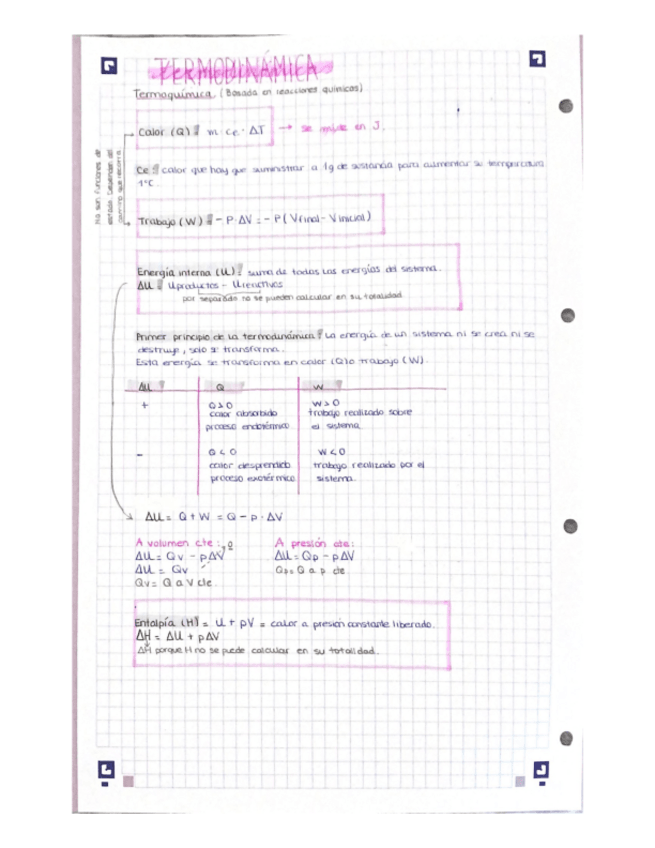 TERMODINÁMICA
Termoquímica (Basada en reacciones químicas)
Calor (Q): m · ce · ΔT → se mide en J.
No son funciones de
estado. Dependen del
camino que recorra
Ce: calor que hay que suministrar a 1g de sustancia para aumentar su temperatura
1°C.
Trabajo (W): - P · ΔV = - P (Vfinal - Vinicial)
Energía interna (U): suma de todas las energías del sistema.
ΔU: Uproductos - Ureactivos
por separado no se pueden calcular en su totalidad
Primer principio de la termodinámica: La energía de un sistema ni se crea ni se
destruye, solo se transforma.
Esta energía se transforma en calor (Q) o trabajo (W).
ΔU Q W
+ Q>0 W>0
calor absorbido trabajo realizado sobre
proceso endotérmico el sistema.
- Q<0 W<0
calor desprendido trabajo realizado por el
proceso exotérmico sistema.
ΔU = Q + W = Q - p · ΔV
A volumen cte: A presión cte:
ΔU = Qv - pΔV 0 ΔU = Qp - pΔV
ΔU = Qv Qp = Q a p cte.
Qv = Q a V cte.
Entalpía (H) = U + pV = calor a presión constante liberado.
ΔH = ΔU + pΔV
ΔH porque H no se puede calcular en su totalidad.